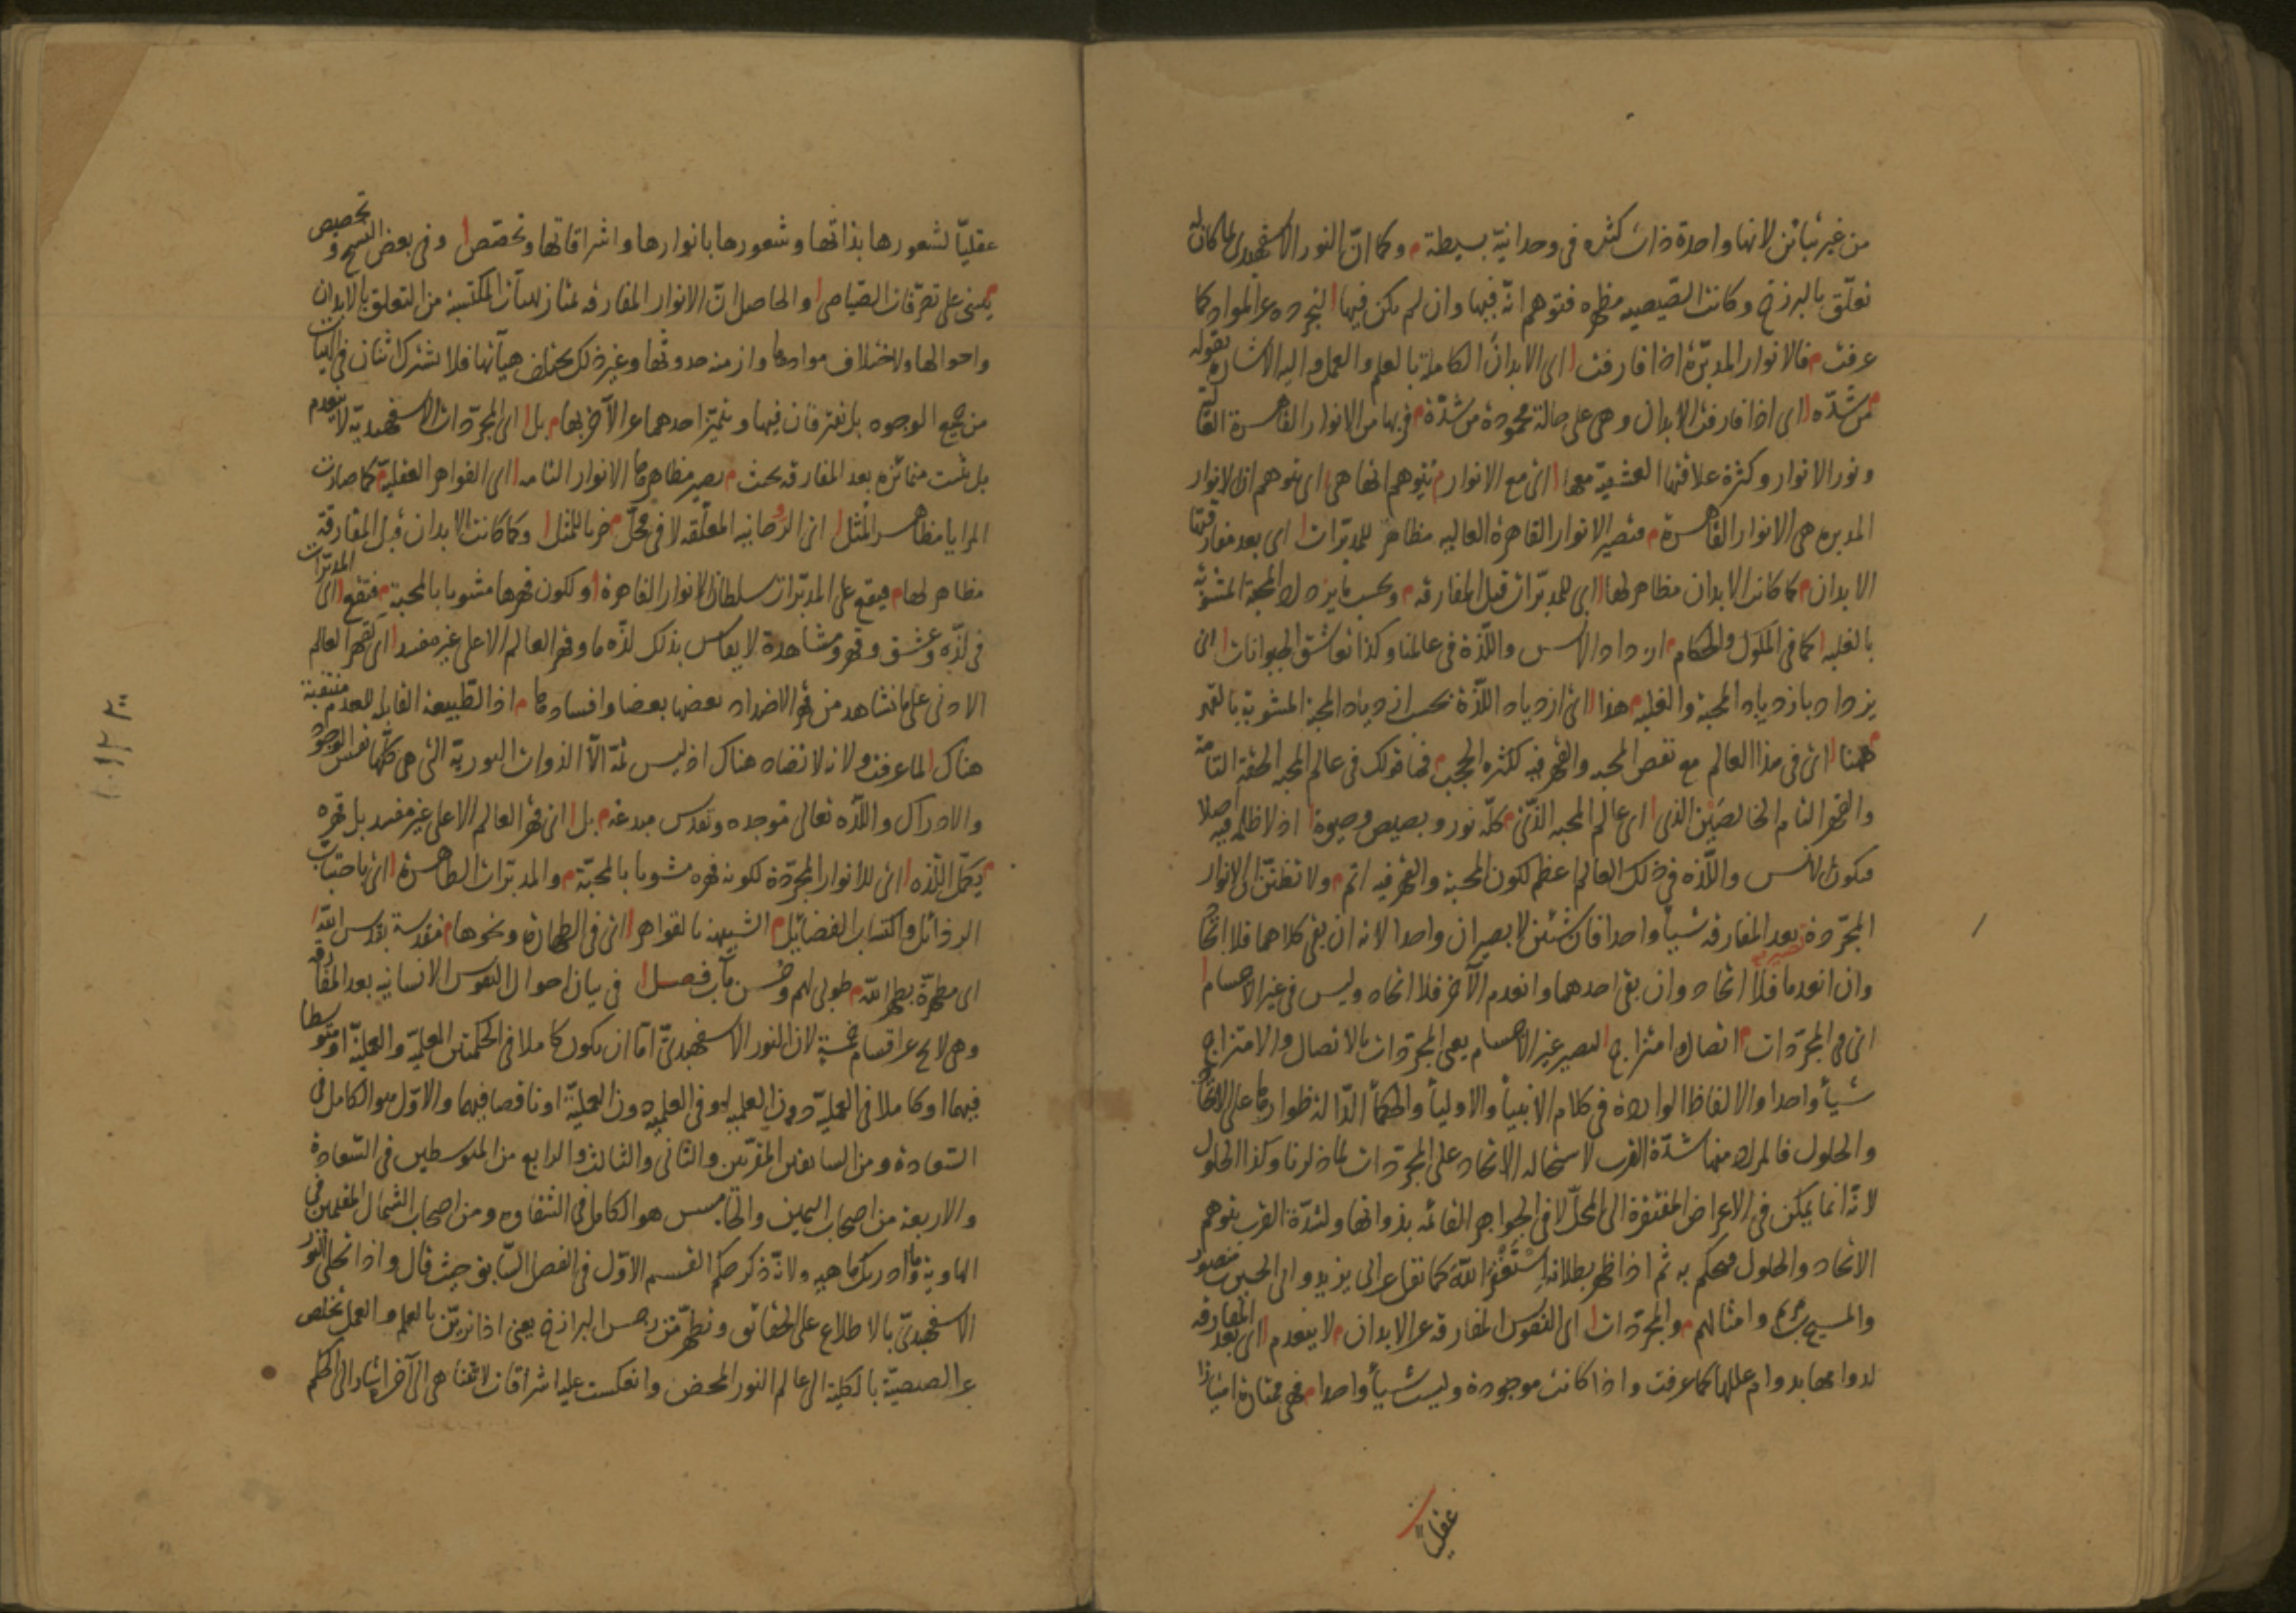 من غير تباين لانها واحدة ذات كثره فى وحدانية بسيطة م وكما ان النور الاسفهبدى لما كان له
تعلق بالبرزخ وكانت الصيصيه مظهره فتوهم انه فيها وان لم يكن فيها لتجرده عن المواد كما
عرفت م فالانوار المدبرة اذا فارقت ا اى الابدان الكاملة بالعلم والعمل واليه الاشارة بقوله
من شدة ا اى اذا فارقت الابدان وهى على حالة محمودة من شدة م قربها من الانوار القاهرة العالية
ونور الانوار وكثرة علاقتها العشقية معها ا اى مع الانوار م تتوهم انها هى ا اى تتوهم ان الانوار
المدبره هى الانوار القاهرة م فتصير الانوار القاهرة العاليه مظاهر للمدبرات ا اى بعد مفارقتها
الابدان م كما كانت الابدان مظاهر لها ا اى للمدبرات قبل المفارقه م وبحسب ما يزداد المحبة المشوبة
بالغلبه ا كما فى الملوك والحكام م ازداد الانس واللذة فى عالمنا وكذا تعاشق الحيوانات ا اى
يزداد بازدياد المحبة والغلبه م هذا ا اى ازدياد اللذة بحسب ازدياد المحبة المشوبة بالقهر
م ههنا ا اى فى هذا العالم مع نقص المحبه والقهر فيه لكثره الحجب م فما قولك فى عالم المحبه الحقة التامة
والقهر التام الخالصين الذى ا اى عالم المحبه الذى م كله نور وبصيص وحيوة ا اذ لا ظلمه فيه اصلا
فيكون الانس واللذه فى ذلك العالم اعظم لكون المحبة والقهر فيه اتم م ولا تظنن ان الانوار
المجردة تصير بعد المفارقه شيأ واحدا فان شيئين لا يصيران واحدا لانه ان بقى كلاهما فلا اتحاد
وان انعدما فلا اتحاد وان بقى احدهما وانعدم الآخر فلا اتحاد وليس فى غير الاجسام ا
اى فى المجردات م اتصال وامتزاج ا ليصير غير الاجسام يعى المجردات بالاتصال والامتزاج
شيأ واحدا والالفاظ الوارده فى كلام الانبيأ والاوليأ والحكمأ الدالة ظواهرها على الاتحاد
والحلول فالمراد منها شدة القرب لاستحاله الاتحاد على المجردات لما ذكرنا وكذا الحلول
لانه انما يمكن فى الاعراض المفتقرة الى المحل لا فى الجواهر القائمه بذواتها ولشدة القرب يتوهم
الاتحاد والحلول فيحكم به ثم اذا ظهر بطلانه استغفر الله كما نقل عن ابى يزيد والحسين بن منصور
والمسيح بن مريم وامثالهم م والمجردات ا اى النفوس المفارقه عن الابدان م لا ينعدم ا اى بعد المفارقه
لدوامها بدوام عللها كما عرفت واذا كانت موجودة وليست شيأ واحدا م فهى ممتازة امتيازا
عقليا
عقليا لشعورها بذاتها وشعورها بانوارها واشراقاتها وتخصص ا وفى بعض النسخ وتخصيص
م يبتنى على تصرفات الصياصى ا والحاصل ان الانوار المفارقه تمتاز بهيآت المكتسبة من التعلق بالابدان
واحوالها ولاختلاف موادها وازمنه حدوثها وغير ذلك يختلف هيآتها فلا يشترك اثنان فى الهيآت
من جميع الوجوه بل تفترقان فيها ويتميز احدهما عن الآخر بها م بل ا اى المجردات الاسفهبدية لا ينعدم
بل تثبت متمائزه بعد المفارقه بحيث م يصير مظاهرها الانوار التامه ا اى القواهر العقلية م كما صارت
المرايا مظاهر المثل ا اى الروحانيه المعلقه لا فى محل م ضربا للمثل ا وكما كانت الابدان قبل المفارقة
مظاهر لها م فيقع على المدبرات سلطان الانوار القاهرة ا ولكون قهرها مشوبا بالمحبة م فتقع ا اى المدبرات
فى لذه وعشق وقهر ومشاهدة لا يقاس بذلك لذه ما وقهر العالم الاعلى غير مفسد ا اى كقهر العالم
الادنى على ما نشاهد من قهر الاضداد بعضها بعضا وافسادها م اذ الطبيعة القابلة للعدم منتفية
هناك ا لما عرفت ولانه لا تضاد هناك اذ ليس ثمة الا الذوات النوريه التى هى كلها نفس الوجود
والادراك واللذه تعالى موجده وتقدس مبدعه م بل ا اى قهر العالم الاعلى غير مفسد بل قهره
م يكمل اللذه ا اى للانوار المجردة لكونه قهره مشوبا بالمحبة م والمدبرات الطاهرة ا اى باجتناب
الرذائل واكتساب الفضائل م الشبيهة بالقواهر ا اى فى الطهارة ونحوها م مقدسة بقدس الله ا
اى مطهرة بطهر الله م طوبى لهم وحسن مآب فصل ا فى بيان احوال النفوس الانسانيه بعد المفارقه
وهى لا يخ عن اقسام خمسة لان النور الاسفهبدى اما ان يكون كاملا فى الحكمتين العلمية والعملية او متوسطا
فيهما او كاملا فى العملية دون العلميه او فى العلميه دون العملية او ناقصا فيهما والاول هو الكامل فى
السعادة ومن السابقين المقربين والثانى والثالث والرابع من المتوسطين فى السعادة
والاربعة من اصحاب اليمين والخامس هو الكامل فى الشقاوه ومن اصحاب الشمال المقيمين فى
الهاوية وما ادريك ما هيه ولانه ذكر حكم القسم الاول فى الفصل السابق حيث قال واذا تجلى النور
الاسفهبدى بالاطلاع على الحقائق وتطهر من رجس البرازخ يعنى اذا تزين بالعلم والعمل تخلص
عن الصيصية بالكلية الى عالم النور المحض وانعكست عليه اشراقات لا تتناهى الى آخر اشار الى حكم